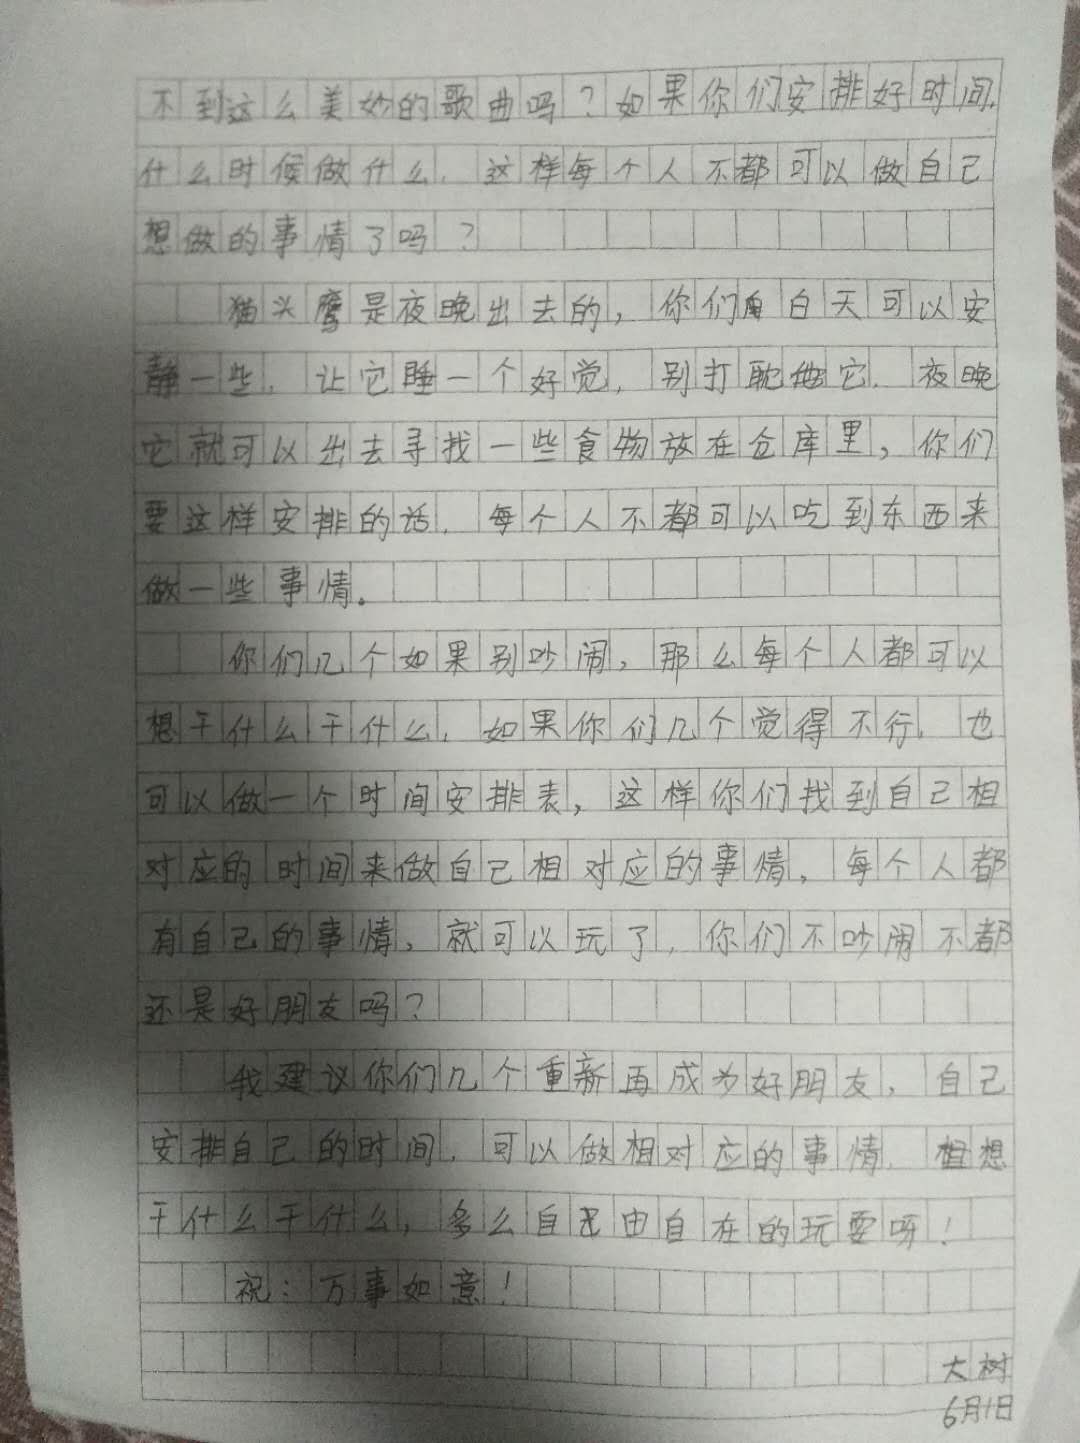 不到这么美妙的歌曲吗？如果你们安排好时间，
什么时候做什么，这样每个人不都可以做自己
想做的事情了吗？
猫头鹰是夜晚出去的，你们白天可以安
静一些，让它睡一个好觉，别打耽它，夜晚
它就可以出去寻找一些食物放在仓库里，你们
要这样安排的话，每个人不都可以吃到东西来
做一些事情。
你们几个如果别吵闹，那么每个人都可以
想干什么干什么，如果你们几个觉得不行，也
可以做一个时间安排表，这样你们找到自己相
对应的时间来做自己相对应的事情，每个人都
有自己的事情，就可以玩了，你们不吵闹不都
还是好朋友吗？
我建议你们几个重新再成为好朋友，自己
安排自己的时间，可以做相对应的事情，想
干什么干什么，多么自由自在的玩耍呀！
祝：万事如意！
大树
6月1日